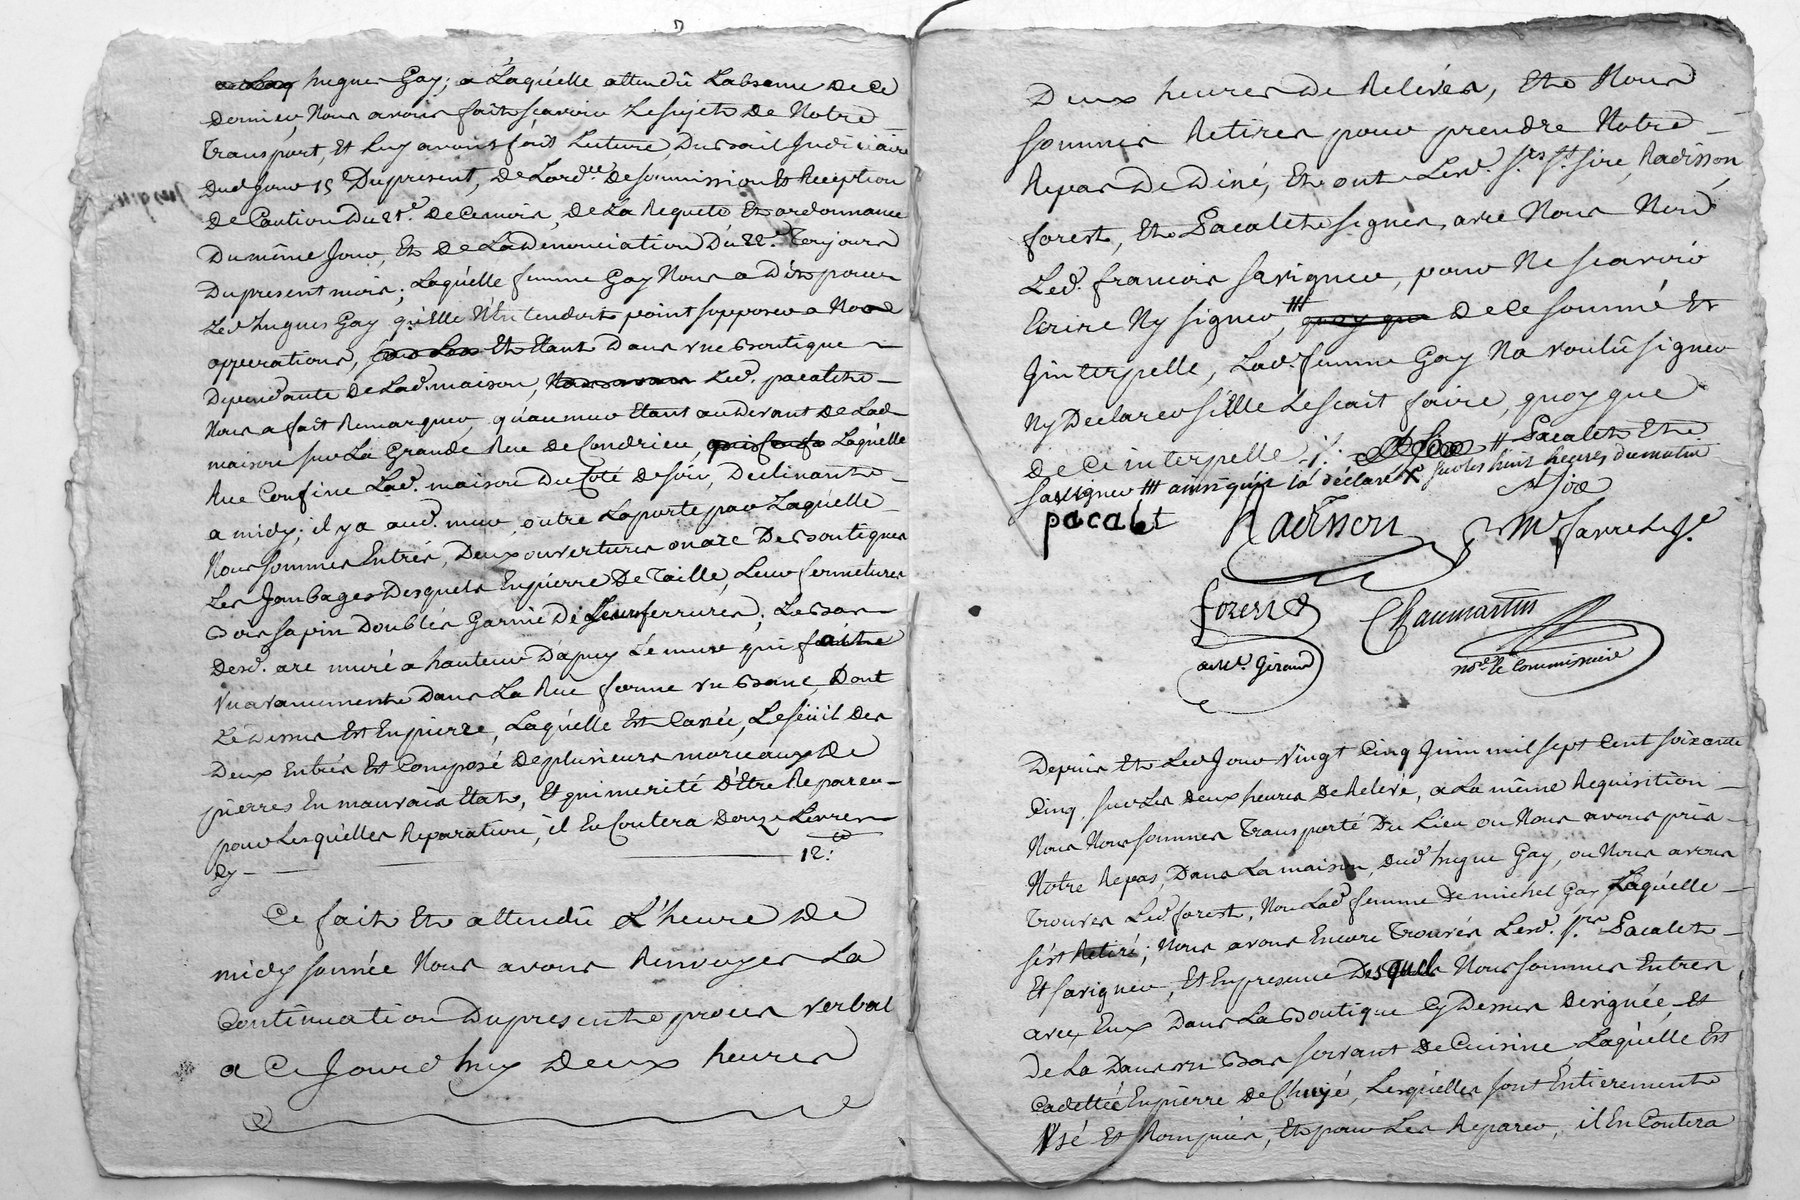 hugues Gay; a Laquelle attendû Labsence De Ce
Dernier, Nous avons fait sçavoir Le sujet De Notre
Transport, Et Luy avons fait Lecture, Du Bail Judiciaire
Dud. Jour 15e Dupresent, De Lord.ce De soumission Et Reception
De Caution Du 21e. De Ce mois, De La Requete Et ordonnance
Du même Jour, Et De La Denonciation Du 22e. Toujours
Du present mois; Laquelle femme Gay Nous a Dit pour
Led. hugues Gay qu'Elle N'Entendoit point s'opposer a Nos
opperations, Et Etant Dans une Boutique
Dependante De Lad. maison, Led. pacalet
Nous a fait Remarquer, qu'au mur Etant au Devant De Lad.
maison sur La Grande Rue De Condrieu, Laquelle
Rue Confine Lad. maison Du Coté De soir, Declinant
a midy; il y a aud. mur, outre La porte par Laquelle
Nous sommes Entrés, Deux ouvertures en arc De Boutiques
Les Jambages Desquels En pierre De Taille, Leur fermetures
Bois sapin Doublés Garnie De Leurs ferrures; Le Bas
Desd. arc muré a hauteur D'apuy Le mure qui fait
un avancement Dans La Rue forme un Banc, Dont
Le Dessus Est En pierre, Laquelle Est Cassée, Le seüil Des
Deux Entrés Est Composé De plusieurs morceaux De
pierres En mauvais Etat, Et qui merité D'Etre Reparer
pour Lesquelles Reparation, il En Coutera Douze Livres
Cy 12.
Ce fait Et attendû L'heure De
midy sonnée Nous avons Renvoyer La
Continuation Du present procès verbal
a Ce Jourd'huy Deux heures
Deux heures De Relevés, Et Nous
sommes Retirés pour prendre Notre
Repas De Diné, Et ont Lesd. Srs. St. sire, Radisson,
forest, Et Pacalet signés, avec Nous Non
Led. francois savigneu, pour Ne scavoir
Ecrire Ny signer, De Ce sommé Et
Jnterpelle, Lad. femme Gay N'a voulû signer
Ny Declarer si Elle Le scait faire, quoy que
De Ce interpelle ;/. # Pacalet Et
savigneu ### ainsi qu'il l'a déclaré X sur les huit heures du matin
pacalet Radisson
forest Chaumartin
not.re Commissaire
Depuis Et Led. Jour vingt Cinq Juin mil sept Cent soixante
Cinq, sur Les Deux heures De Relevé, a La même Requisition
Nous Nous sommes Transporté Du Lieu ou Nous avons pris
Notre Repas, Dans La maison, Dud. hugue Gay, ou Nous avons
Trouvés Led. forest, Non Lad. femme De michel Gay Laquelle
s'est Retiré; Nous avons Encore Trouvés Lesd. Srs. Pacalet
Et savigneu, Et En presence Desquels Nous sommes Entrés
avec Eux Dans La Boutique Cy Dessus Designée, Et
De La Dans un Bas servant De Cuisine Laquelle Est
Cadettée En pierre De Choyé, Lesquelles sont Entierement
Usé Et Rompuës, Et pour Les Reparer, il En Coutera